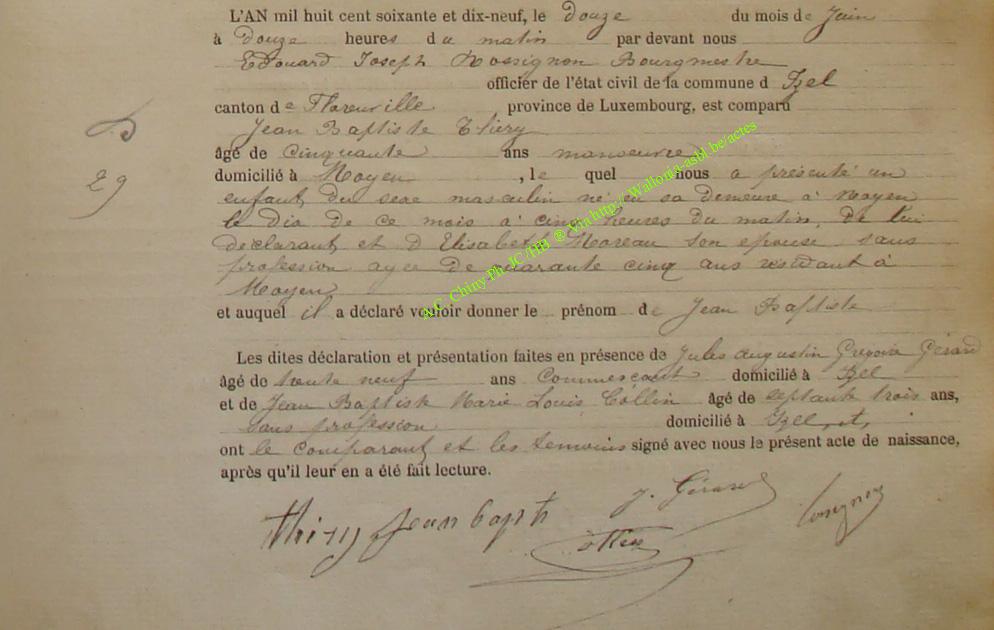 L'AN mil huit cent soixante et dix-neuf, le douze du mois de Juin
à Douze heures du matin par devant nous
Edouard Joseph Rossignon Bourgmestre
officier de l'état civil de la commune d Izel
canton de Florenville, province de Luxembourg, est comparu
Jean Baptiste Thiry
âgé de cinquante ans manoeuvre
domicilié à Moyen, le quel nous a présenté un
enfant du sexe masculin né en sa demeure à Moyen
le dix de ce mois à cinq heures du matin, de lui
déclarant et d Elisabeth Moreau son épouse, sans
profession agée de quarante cinq ans résidant à
Moyen
et auquel il a déclaré vouloir donner le prénom de Jean Baptiste
Les dites déclaration et présentation faites en présence de Jules Augustin Grégoire Gérard
âgé de trente neuf ans Commerçant domicilié à Izel
et de Jean Baptiste Marie Louis Collin âgé de septante trois ans,
sans profession domicilié à Izel, et,
ont le Comparant et les témoins signé avec nous le présent acte de naissance,
après qu'il leur en a été fait lecture.
29
Thiry Jean bapt J. Gérard
A.C. Chiny Ph JC /HB ® Via http://Wallonia-asbl.be/actes